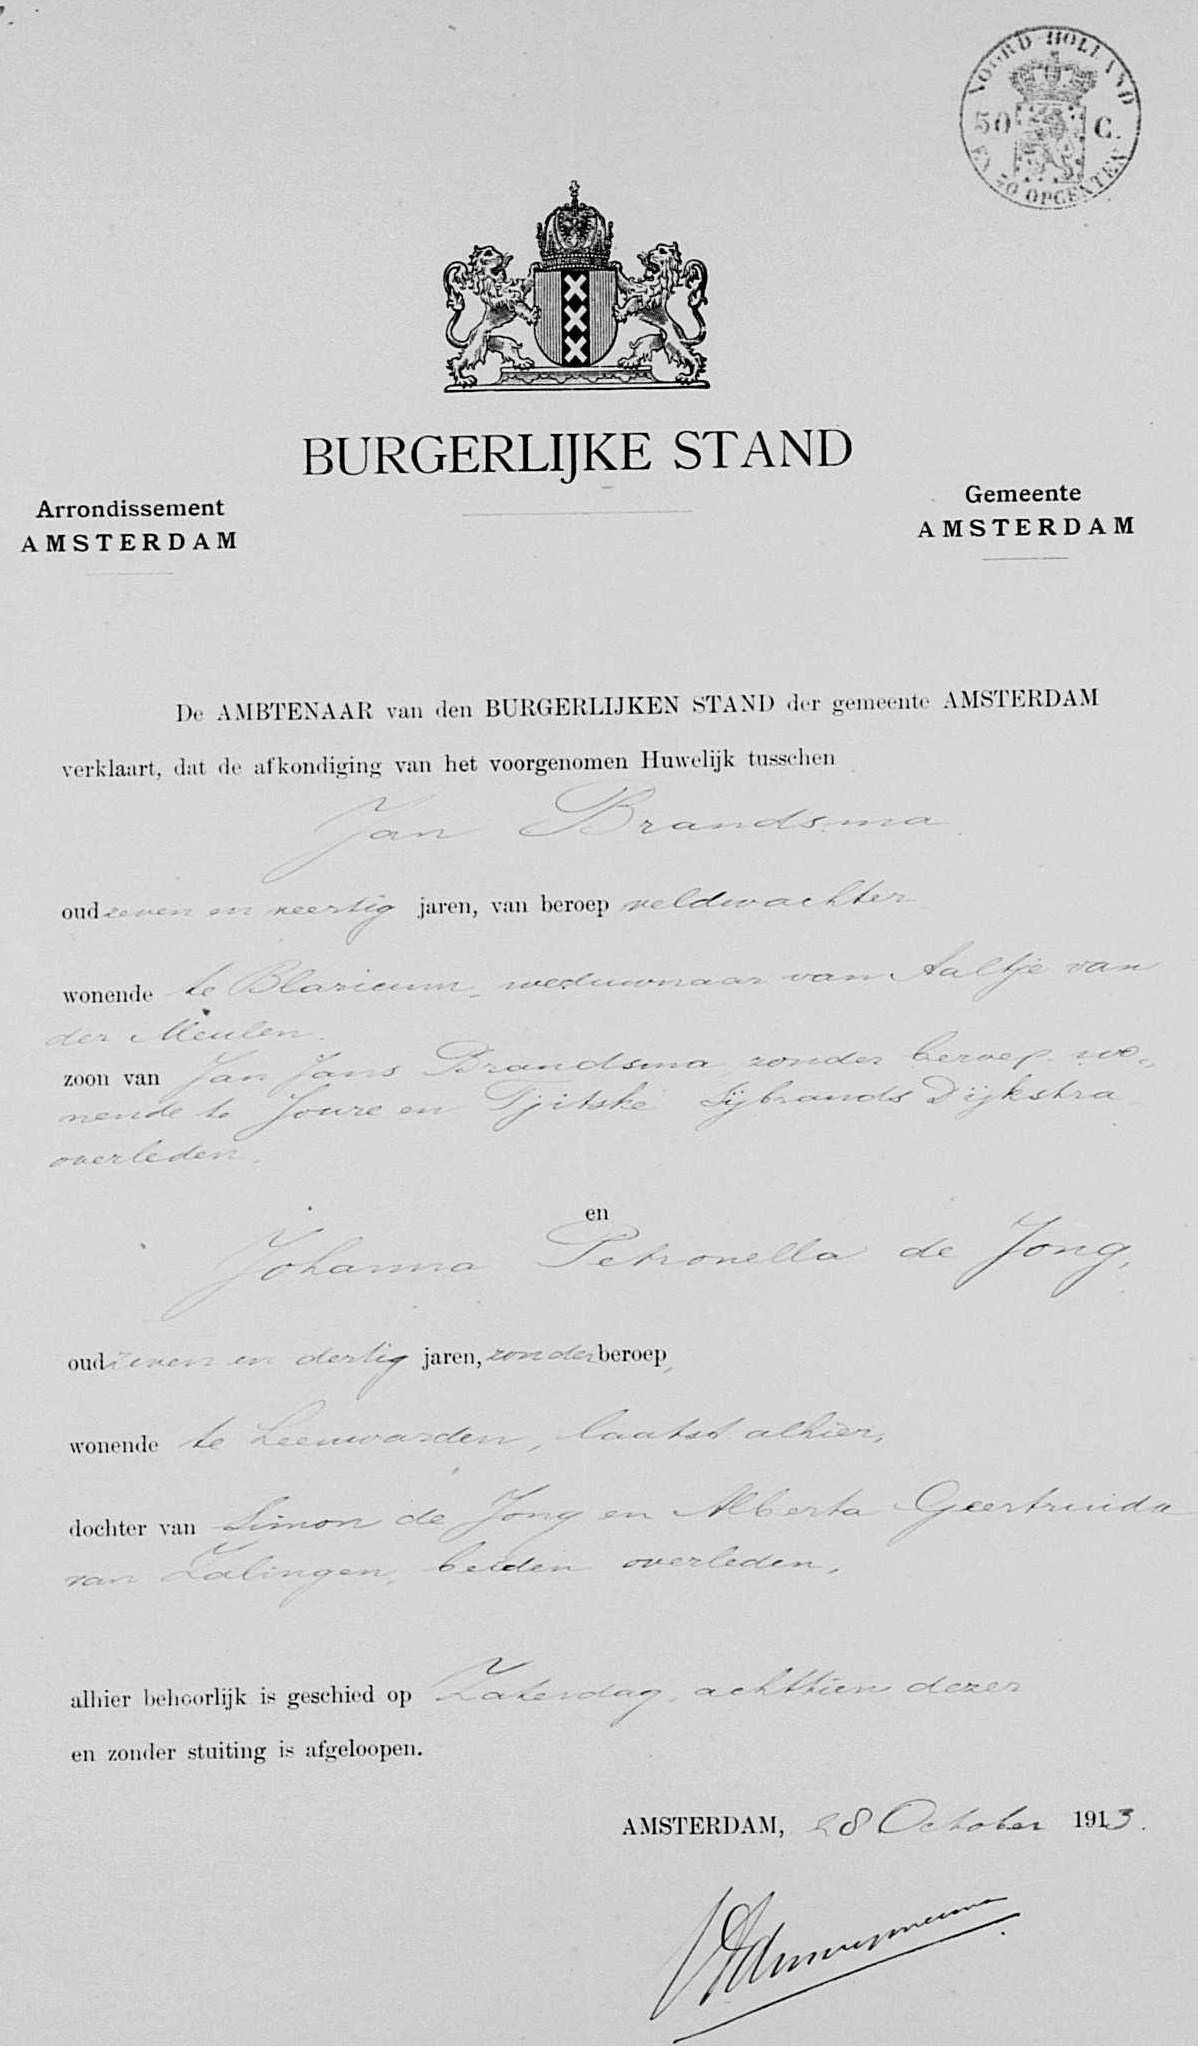 NOORD-HOLLAND
50 C.
EN 50 OPCENTEN
BURGERLIJKE STAND
Arrondissement
AMSTERDAM
Gemeente
AMSTERDAM
De AMBTENAAR van den BURGERLIJKEN STAND der gemeente AMSTERDAM
verklaart, dat de afkondiging van het voorgenomen Huwelijk tusschen
Jan Brandsma
oud zeven en veertig jaren, van beroep veldwachter
wonende te Blaricum, weduwnaar van Aaltje van
der Meulen.
zoon van Jan Jans Brandsma zonder beroep, wo-
nende te Joure en Tjitske Sijbrands Dijkstra
overleden.
en
Johanna Petronella de Jong,
oud zeven en dertig jaren, zonder beroep,
wonende te Leeuwarden, laatst alhier,
dochter van Simon de Jong en Alberta Geertruida
van Zalingen, beiden overleden.
alhier behoorlijk is geschied op Zaterdag, achttien dezer
en zonder stuiting is afgeloopen.
AMSTERDAM, 28 October 1913.